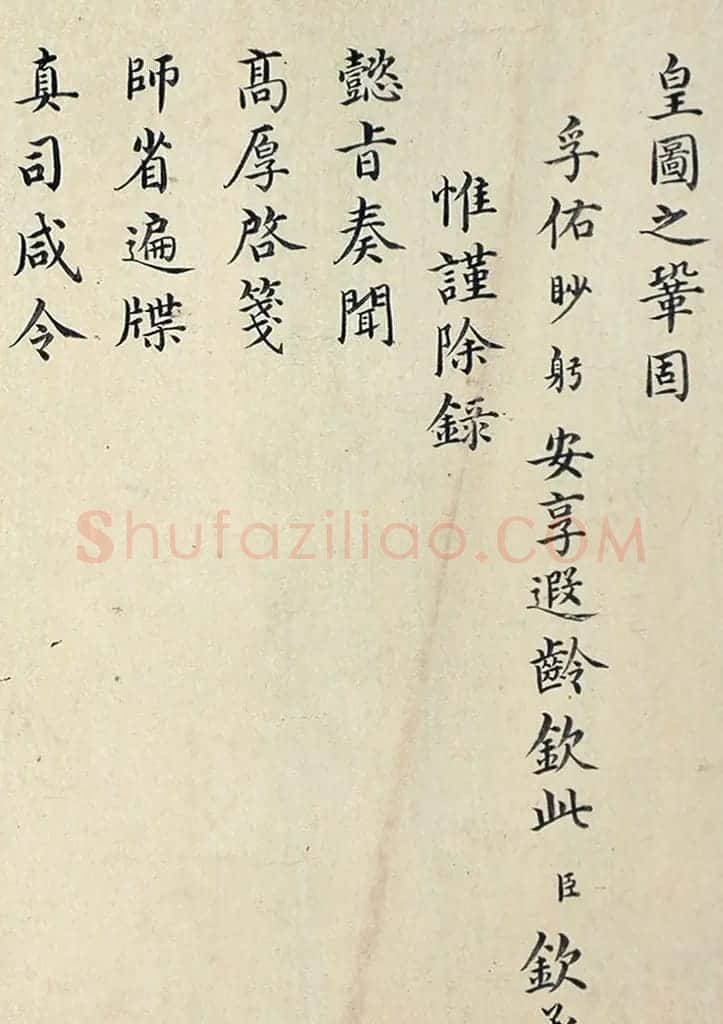 皇圖之鞏固
孚佑眇躬安享遐齡欽此臣欽
惟謹除錄
懿旨奏聞
高厚啓箋
師省遍牒
真司咸令
Shufaziliao.COM